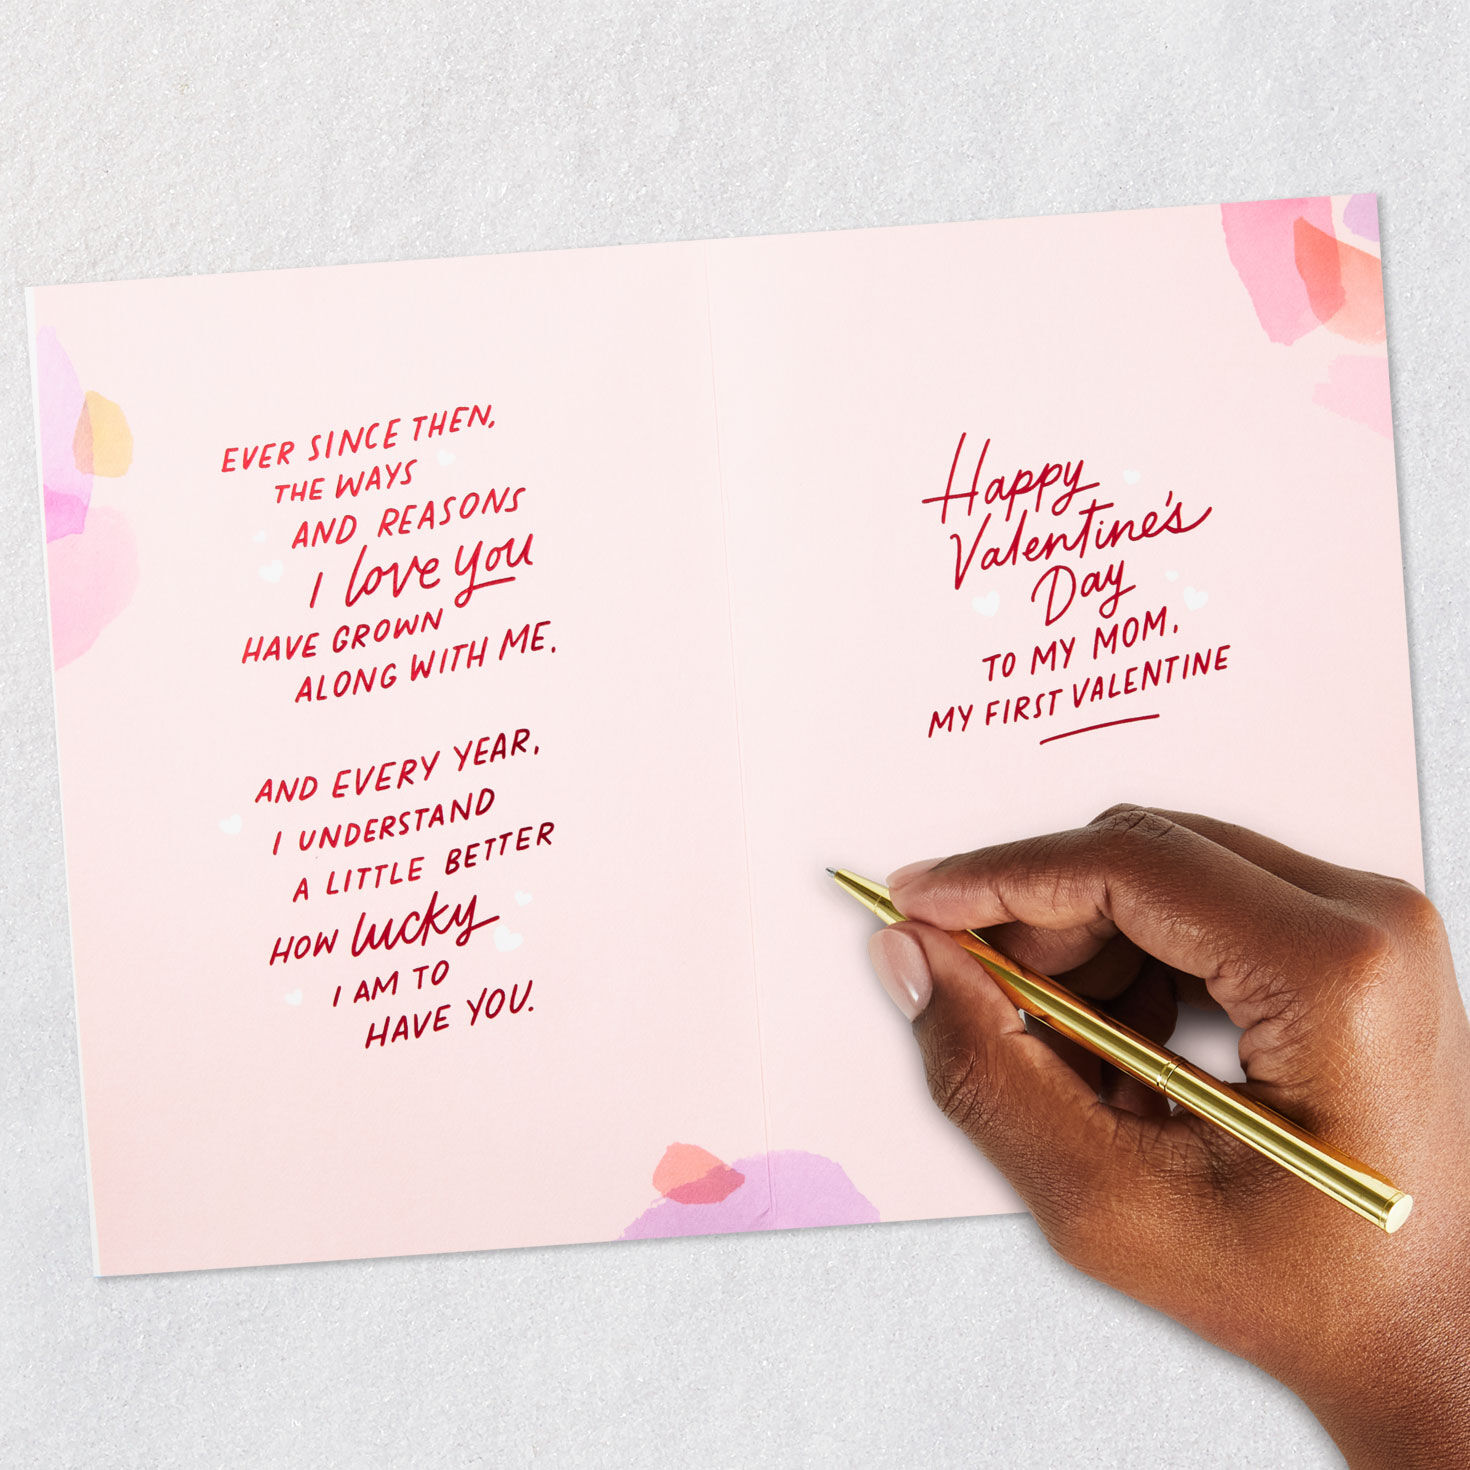 EVER SINCE THEN,
THE WAYS
AND REASONS
I love you
HAVE GROWN
ALONG WITH ME.
AND EVERY YEAR,
I UNDERSTAND
A LITTLE BETTER
HOW lucky
I AM TO
HAVE YOU.
Happy
Valentine's
Day
TO MY MOM,
MY FIRST VALENTINE